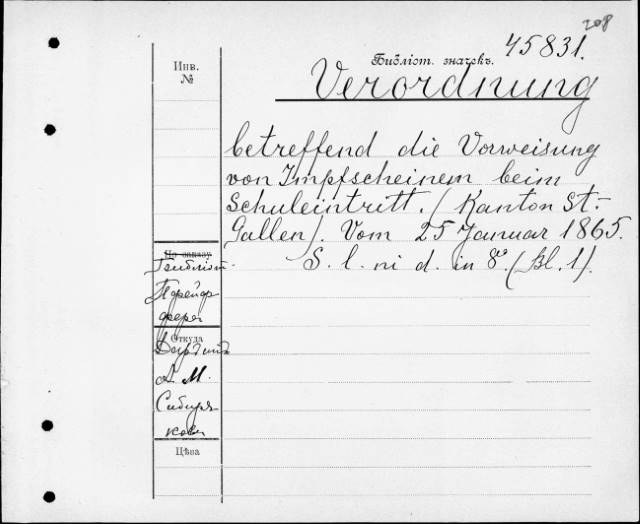 208
45831.
Библіот. значекъ.
Инв.
№
Verordnung
betreffend die Vorweisung
von Impfscheinem beim
Schuleintritt. (Kanton St.-
Gallen). Vom 25 Januar 1865.
S. l. ni d. in 8º. (Bl. 1).
По заказу
Откуда
А. М.
Сибиря-
кова
Цѣна